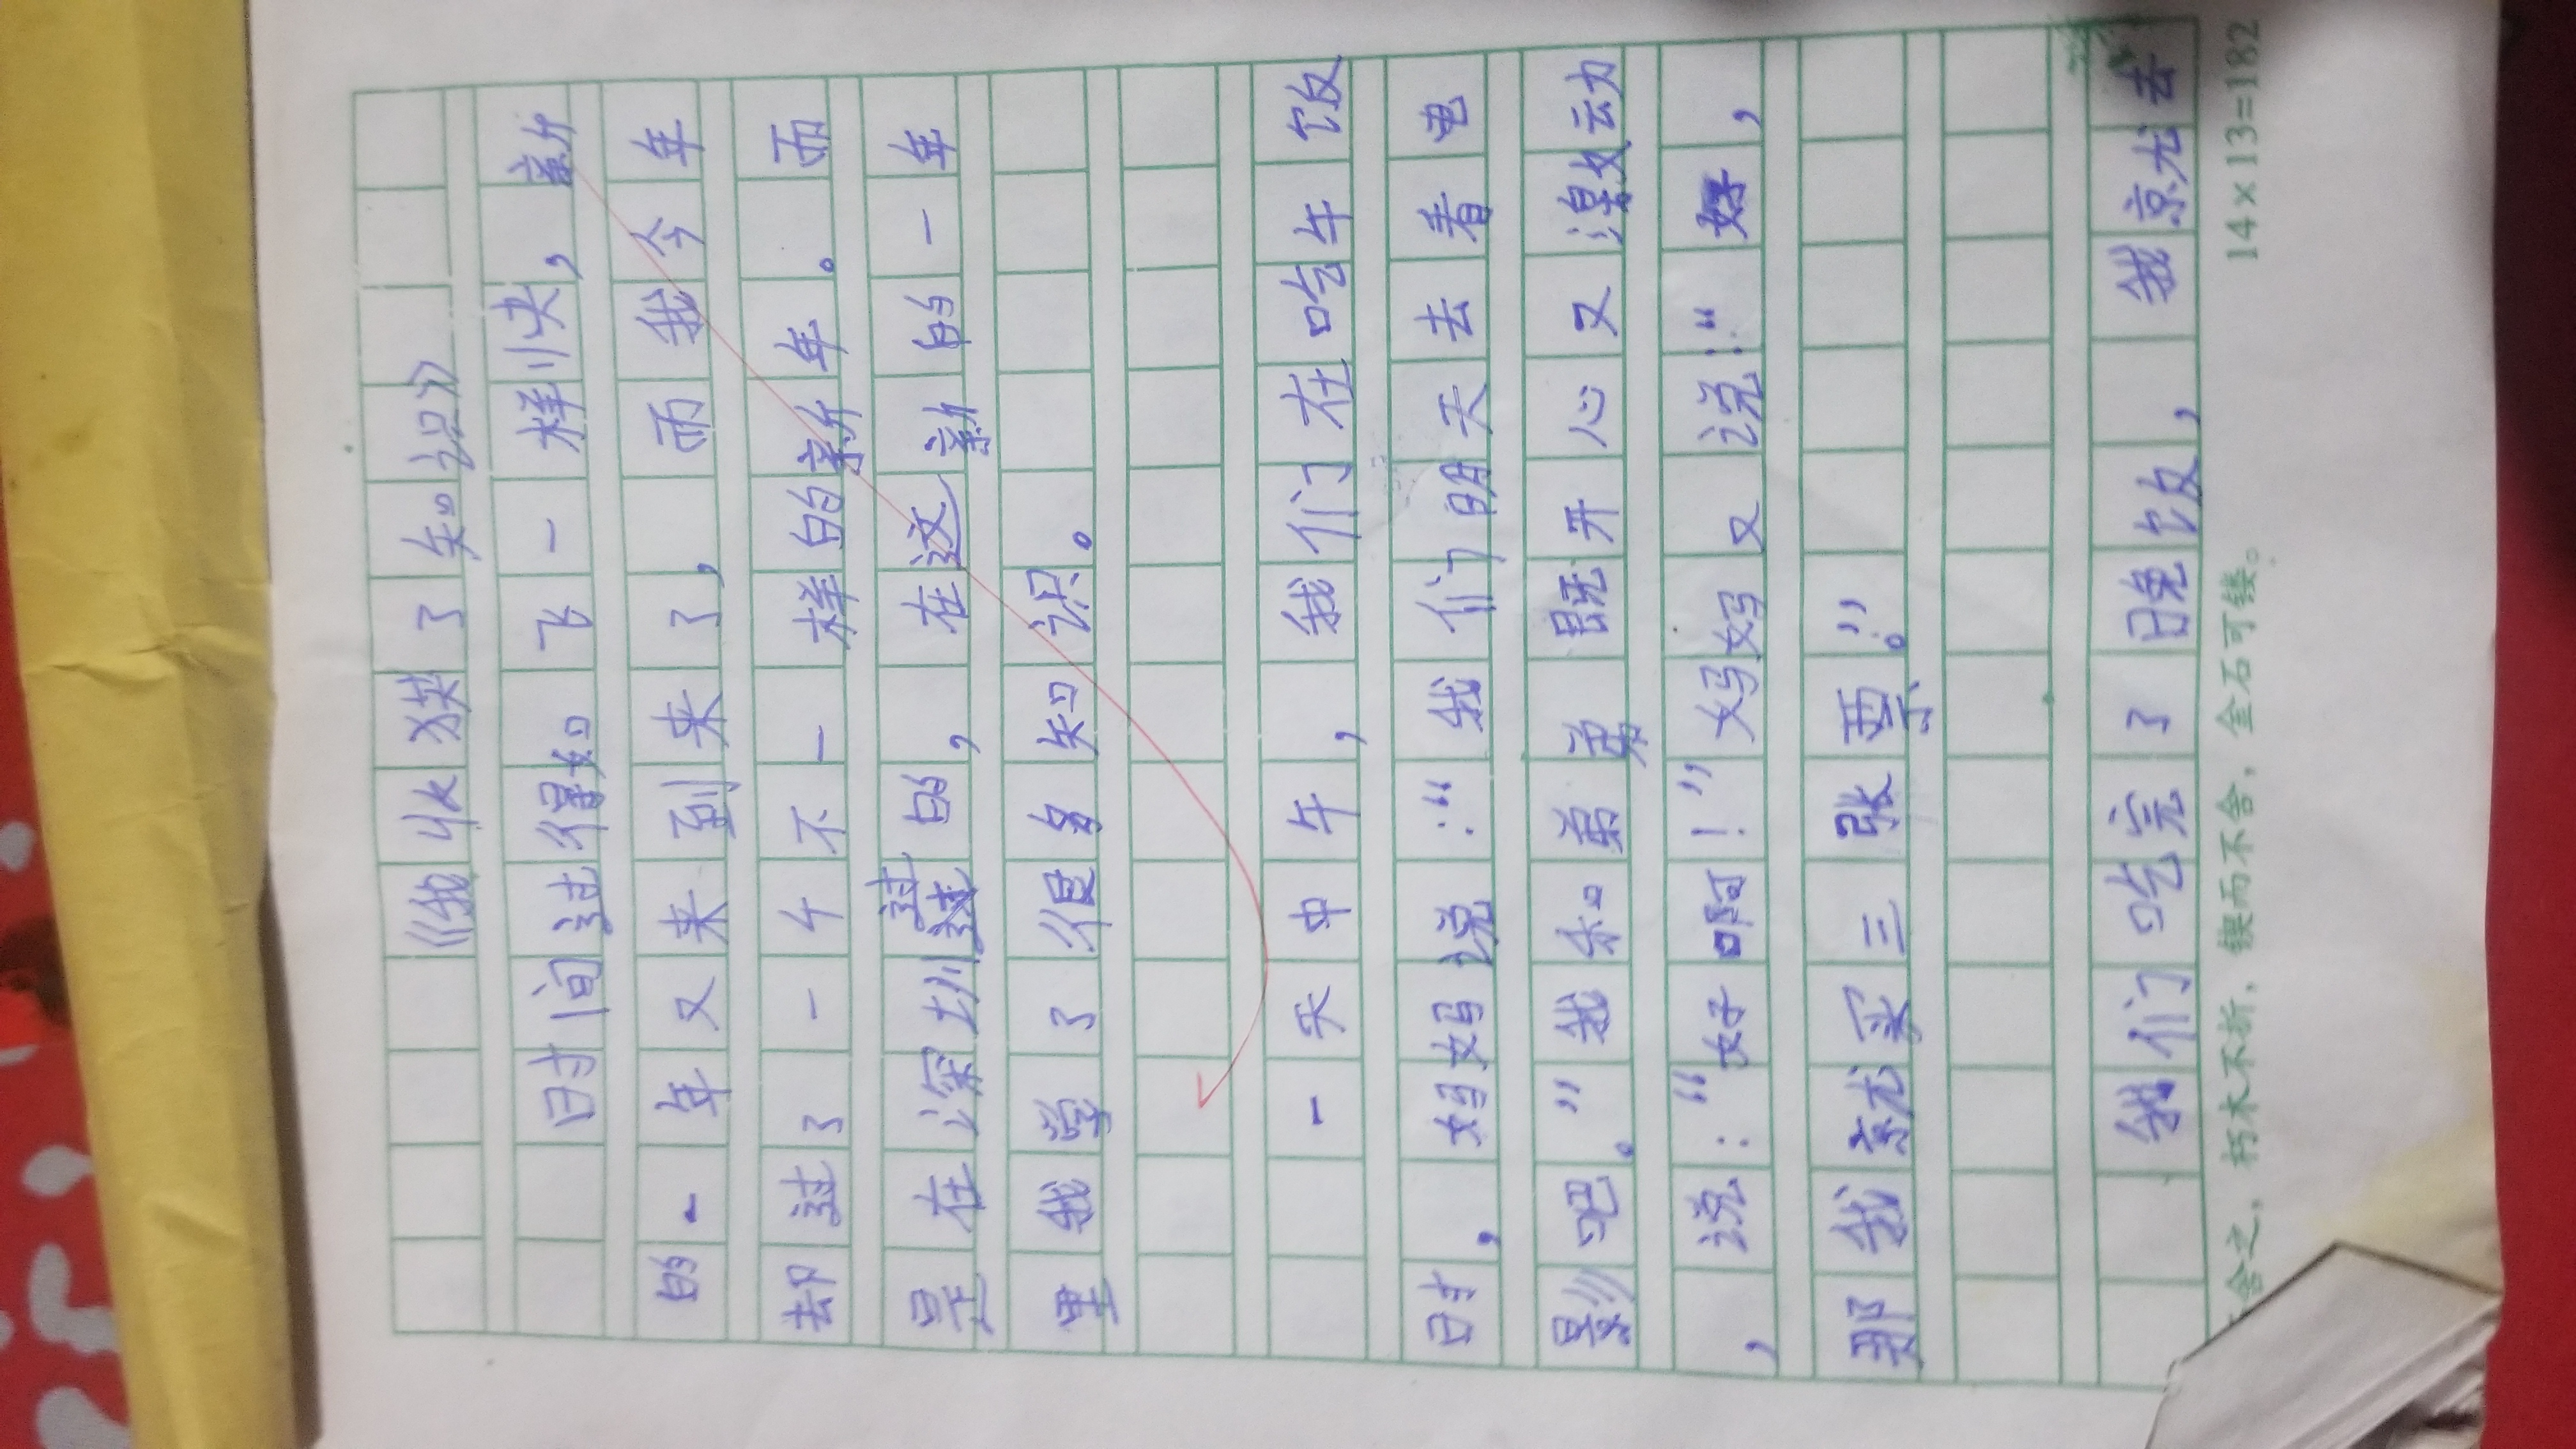 《我收获了知识》
时间过得如飞一样快，新
的一年又来到来了，而我今年
却过了一个不一样的新年。而
是在深圳过的，在这新的一年
里我学了很多知识。
一天中午，我们在吃午饭
时，妈妈说：“我们明天去看电
影吧。”我和弟弟既开心又激动
，说：“好啊！”妈妈又说：“好，
那我就买三张票。”
我们吃完了晚饭，我就去
舍之，朽木不折，锲而不舍，金石可镂。
14×13=182